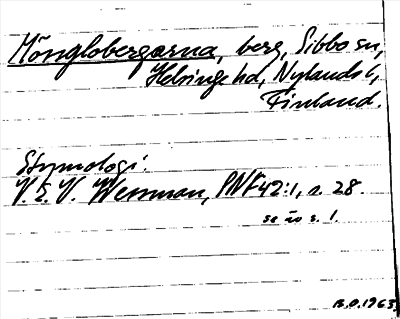 Mönglobergarna, berg, Sibbo sn,
Helsinge hd, Nylands l,
Finland.
Etymologi:
V. E. V. Wessman, PNF 42:1, s. 28.
se äo s. 1.
B.O. 1963.